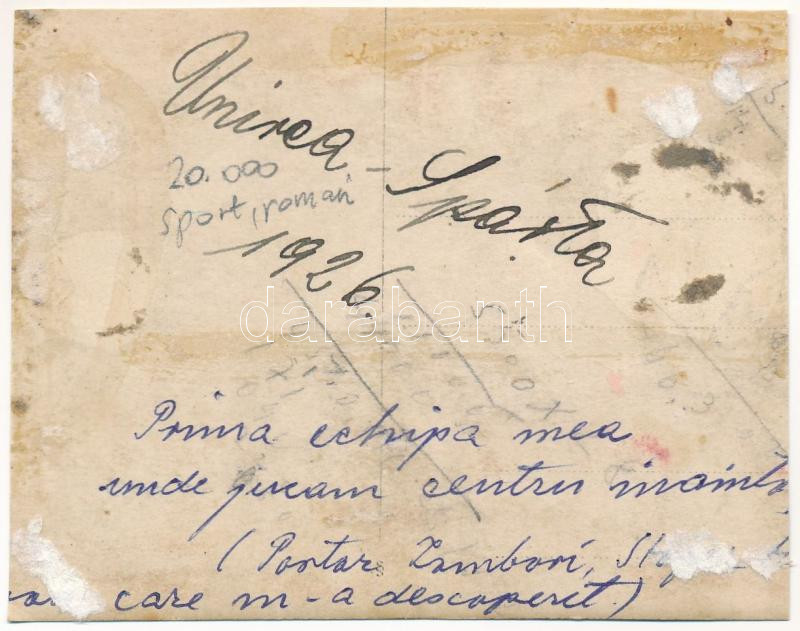 Unirea - Spárta
20.000
sport, roman
1926.
darabanth
Prima echipa mea
unde jucam centru inainta
(Portar Zambori,
care m-a descoperit)